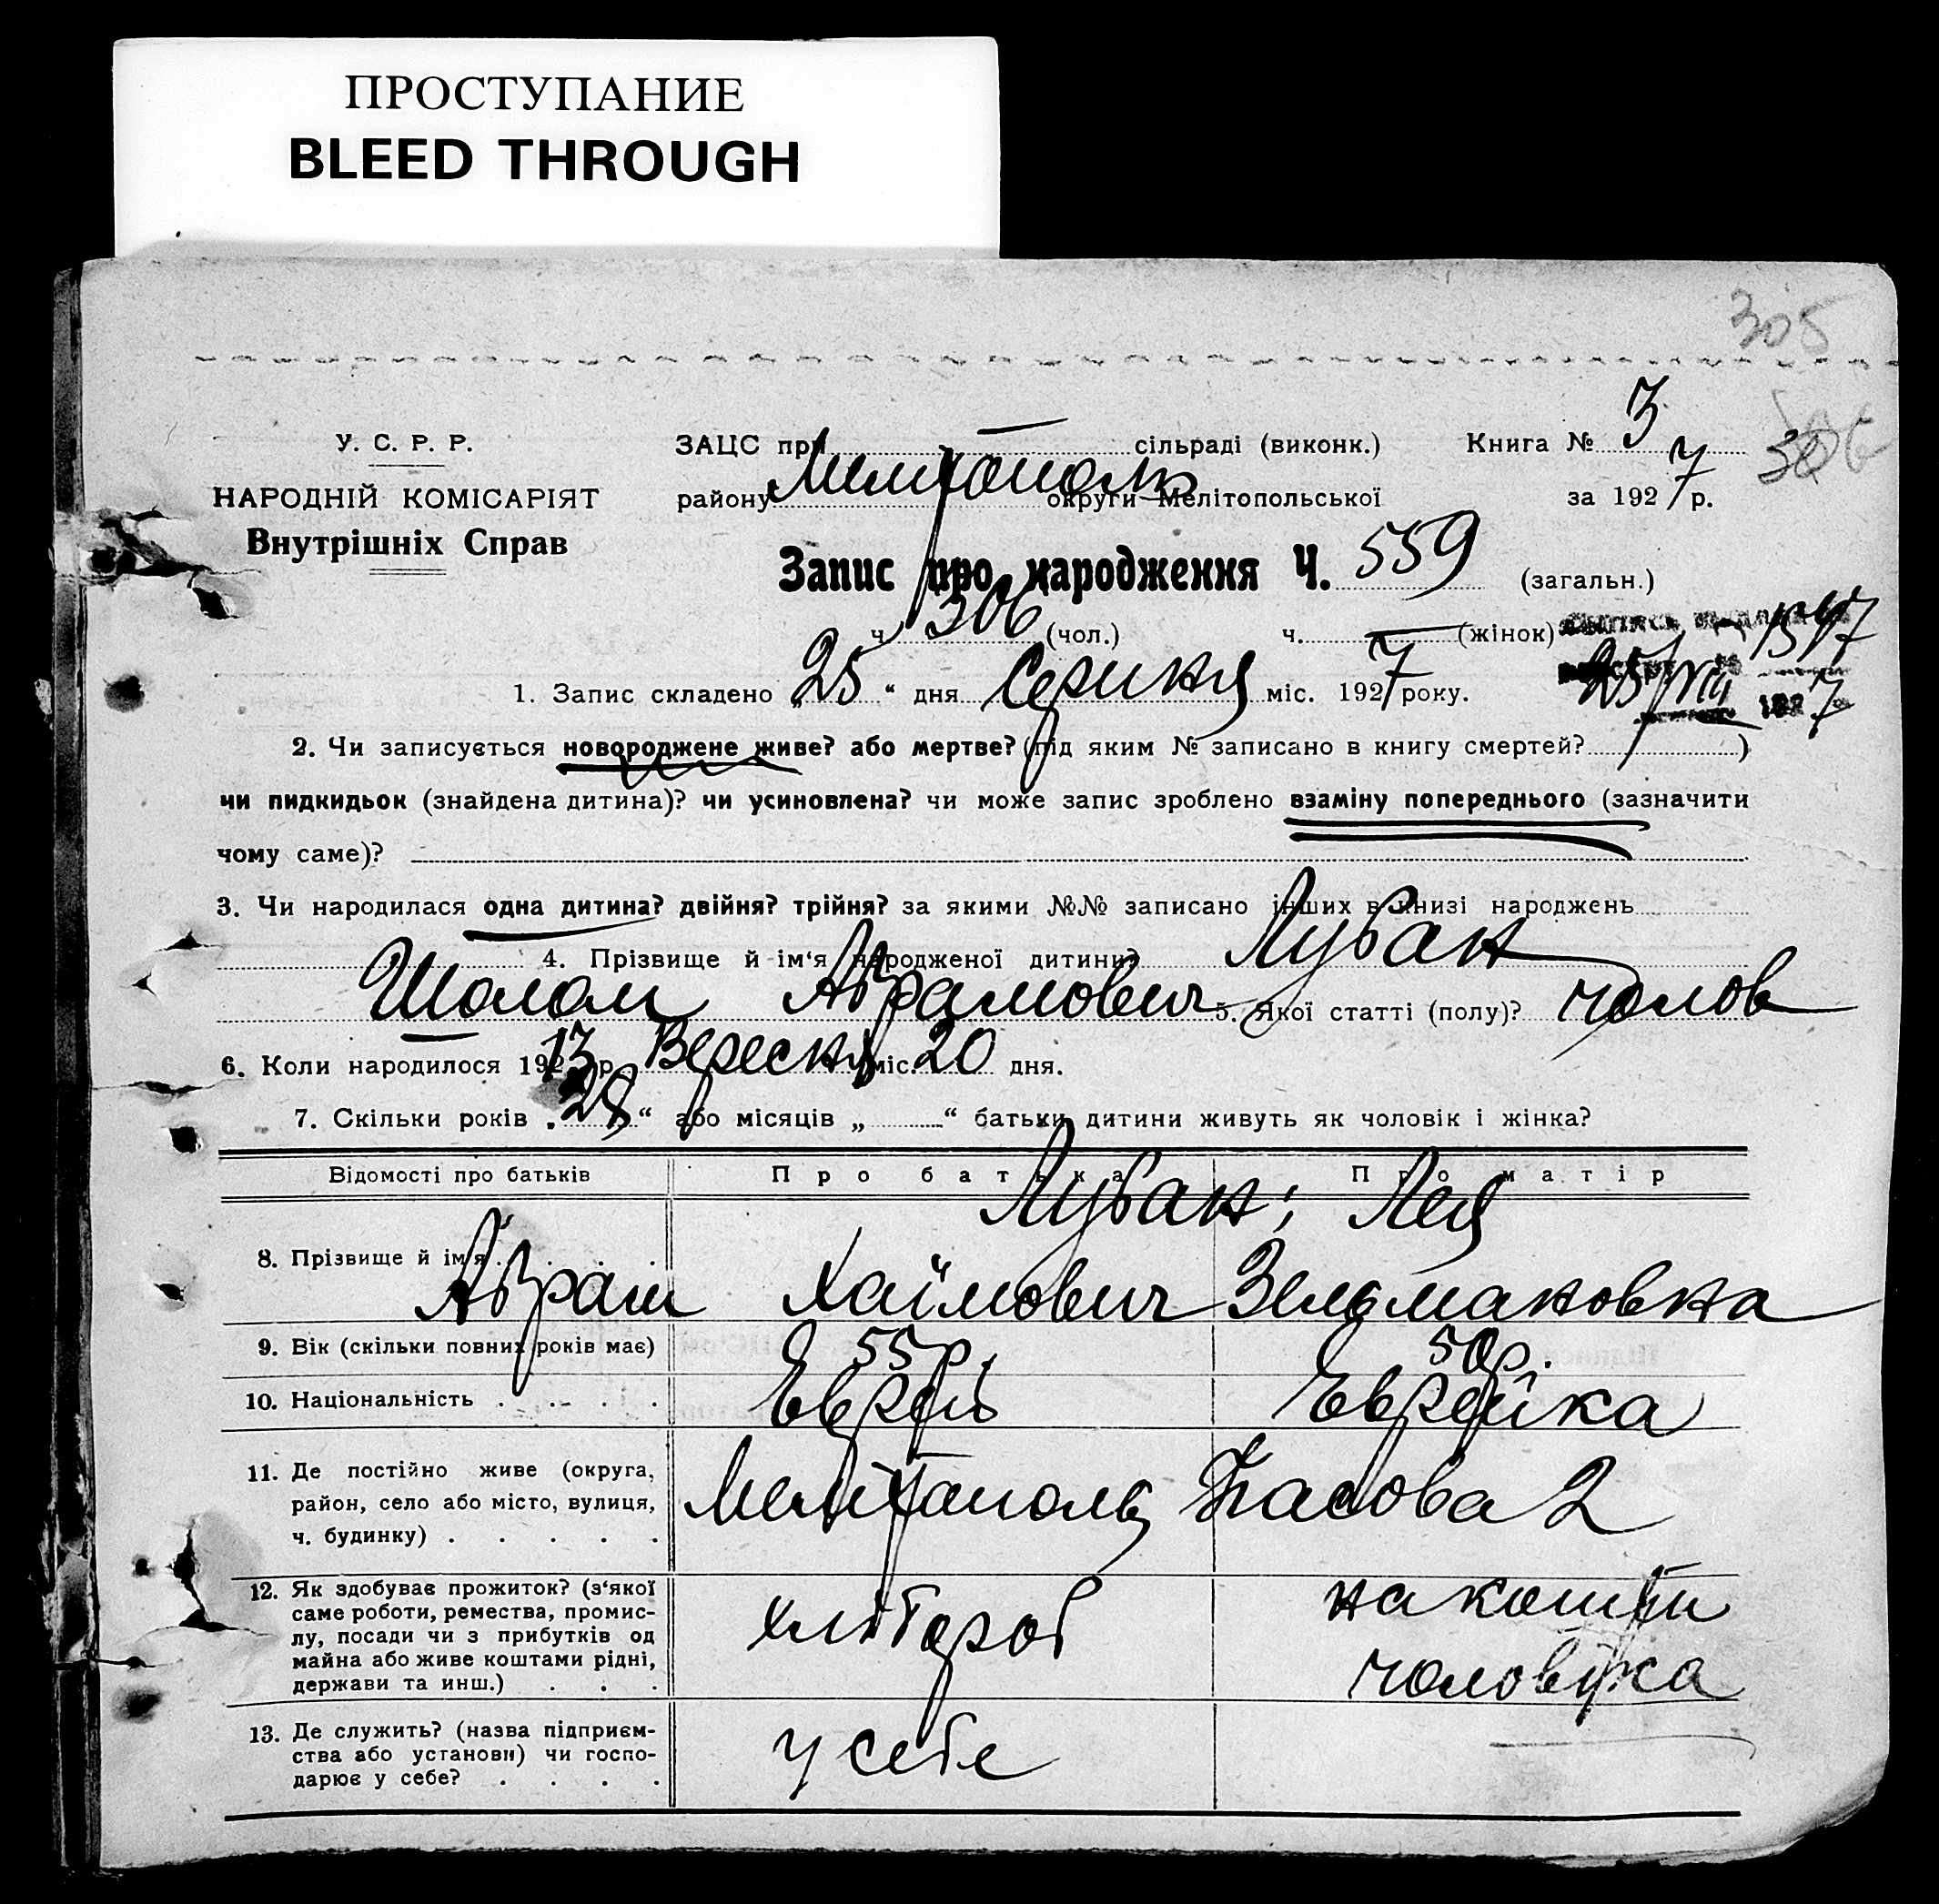 ПРОСТУПАНИЕ
BLEED THROUGH
305
306
У. С. Р. Р.
НАРОДНІЙ КОМІСАРІЯТ
Внутрішніх Справ
ЗАЦС при — сільраді (виконк.) Книга № 3
району Мелітополь округи Мелітопольської за 1927 р.
Запис про народження Ч. 559 (загальн.)
ч. 306 (чол.) ч. — (жінок)
1547
25/VIII 1927
1. Запис складено „25“ дня Серпня міс. 1927 року.
2. Чи записується новороджене живе? або мертве? (під яким № записано в книгу смертей? )
чи пидкидьок (знайдена дитина)? чи усиновлена? чи може запис зроблено взаміну попереднього (зазначити
чому саме)?
3. Чи народилася одна дитина? двійня? трійня? за якими №№ записано інших в книзі народжень
4. Прізвище й ім‘я народженої дитини? Лубан
Шолом Абрамович 5. Якої статті (полу)? чолов
6. Коли народилося 1913 р. Вересня міс. 20 дня.
7. Скільки років „28“ або місяців „ “ батьки дитини живуть як чоловік і жінка?
Відомості про батьків Про батька Про матір
8. Прізвище й ім‘я Лубан; Лея
Абрам Хаїмович Зельмановна
9. Вік (скільки повних років має) 55 р. 50 р.
10. Національність Еврей Еврейка
11. Де постійно живе (округа,
район, село або місто, вулиця,
ч. будинку) Мелітополь 2
12. Як здобуває прожиток? (з‘якої
саме роботи, ремества, промис-
лу, посади чи з прибутків од
майна або живе коштами рідні,
держави та инш.) хлібороб на кошти
чоловіка
13. Де служить? (назва підприєм-
ства або установи) чи госпо-
дарює у себе? у себе